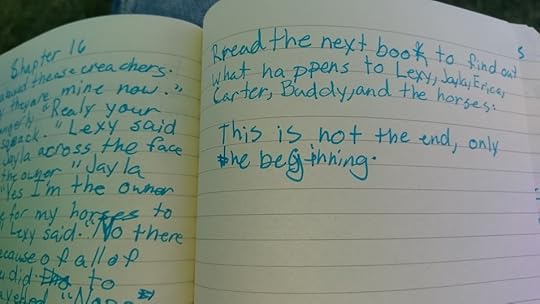 Shapter 16
these creachers.
they are mine now."
"Realy your
squeack. "Lexy said
Jayla across the face
the owner "Jayla
"Yes I'm the owner
for my horses to
Lexy said. "No there
because of all of
did. to
Rread the next book to find out
what happens to Lexy, Jayla,
Carter, Buddy, and the horses.
This is not the end, only
the beginning.
5